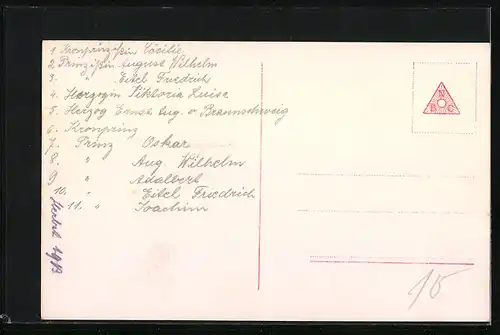 1 Kronprinzeßin Cäcilie
2 Prinzeßin August Wilhelm
3. " Eitel Friedrich
4. Herzogin Viktoria Luise
5. Herzog Ernst Aug. v Braunschweig
6. Kronprinz
7. Prinz Oskar
8. " Aug. Wilhelm
9 " Adalbert
10. " Eitel Friedrich
11. " Joachim
Herbst 1913
N
B C
15